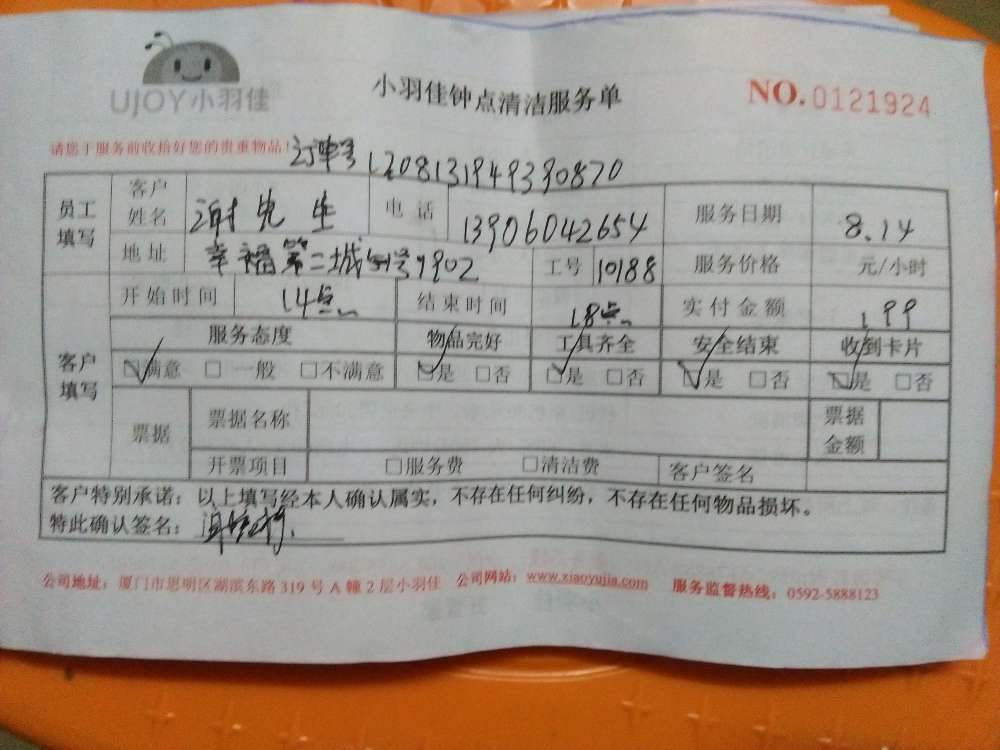 UJOY小羽佳
小羽佳钟点清洁服务单
NO.0121924
请您于服务前收拾好您的贵重物品!
订单号 1208131949390870
员工填写 客户姓名 谢先生 电话 13906042654 服务日期 8.14
地址 幸福第二城 902 工号 10188 服务价格 元/小时
开始时间 14点 结束时间 18点 实付金额 199
客户填写 服务态度 物品完好 工具齐全 安全结束 收到卡片
☑满意 □一般 □不满意 ☑是 □否 ☑是 □否 ☑是 □否 ☑是 □否
票据 票据名称 票据金额
开票项目 □服务费 □清洁费 客户签名
客户特别承诺:以上填写经本人确认属实,不存在任何纠纷,不存在任何物品损坏。
特此确认签名:
公司地址:厦门市思明区湖滨东路319号A幢2层小羽佳 公司网站:www.xiaoyujia.com 服务监督热线:0592-5888123